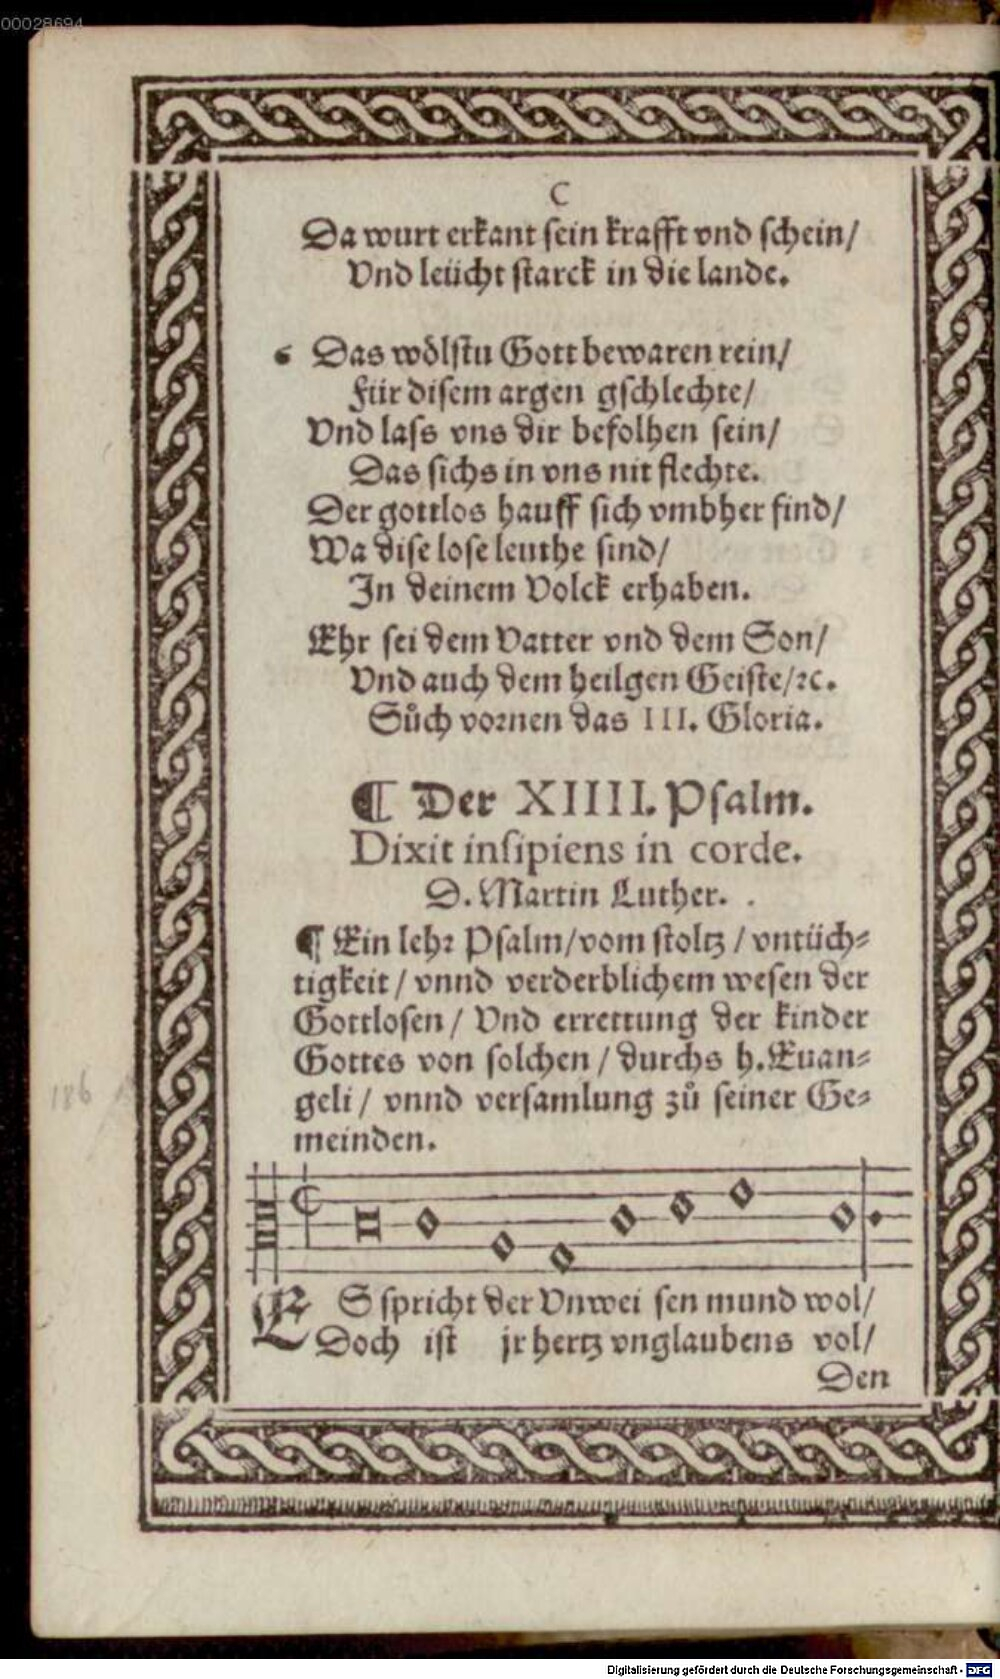 00028694
C
Da wurt erkant sein krafft vnd schein/
Vnd leücht starck in die lande.
6 Das wölstu Gott bewaren rein/
Für disem argen gschlechte/
Vnd lass vns dir befolhen sein/
Das sichs in vns nit flechte.
Der gottlos hauff sich vmbher find/
Wa dise lose leuthe sind/
In deinem Volck erhaben.
Ehr sei dem Vatter vnd dem Son/
Vnd auch dem heilgen Geiste/ꝛc.
Sůch vornen das III. Gloria.
¶ Der XIIII. Psalm.
Dixit insipiens in corde.
D. Martin Luther.
¶ Ein lehr Psalm/vom stoltz/vntüch⸗
tigkeit/vnnd verderblichem wesen der
Gottlosen/Vnd errettung der kinder
Gottes von solchen/durchs h. Euan⸗
geli/vnnd versamlung zů seiner Ge⸗
meinden.
186
ES spricht der Vnwei sen mund wol/
Doch ist jr hertz vnglaubens vol/
Den
Digitalisierung gefördert durch die Deutsche Forschungsgemeinschaft - DFG